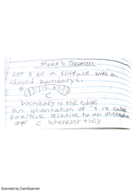 Stoke's Theorem
Let S be a surface with a
closed boundary C.
S
C
boundary is the edge
An orientation of S is called
positive relative to an orientation
of C whenever they
Scanned by CamScanner